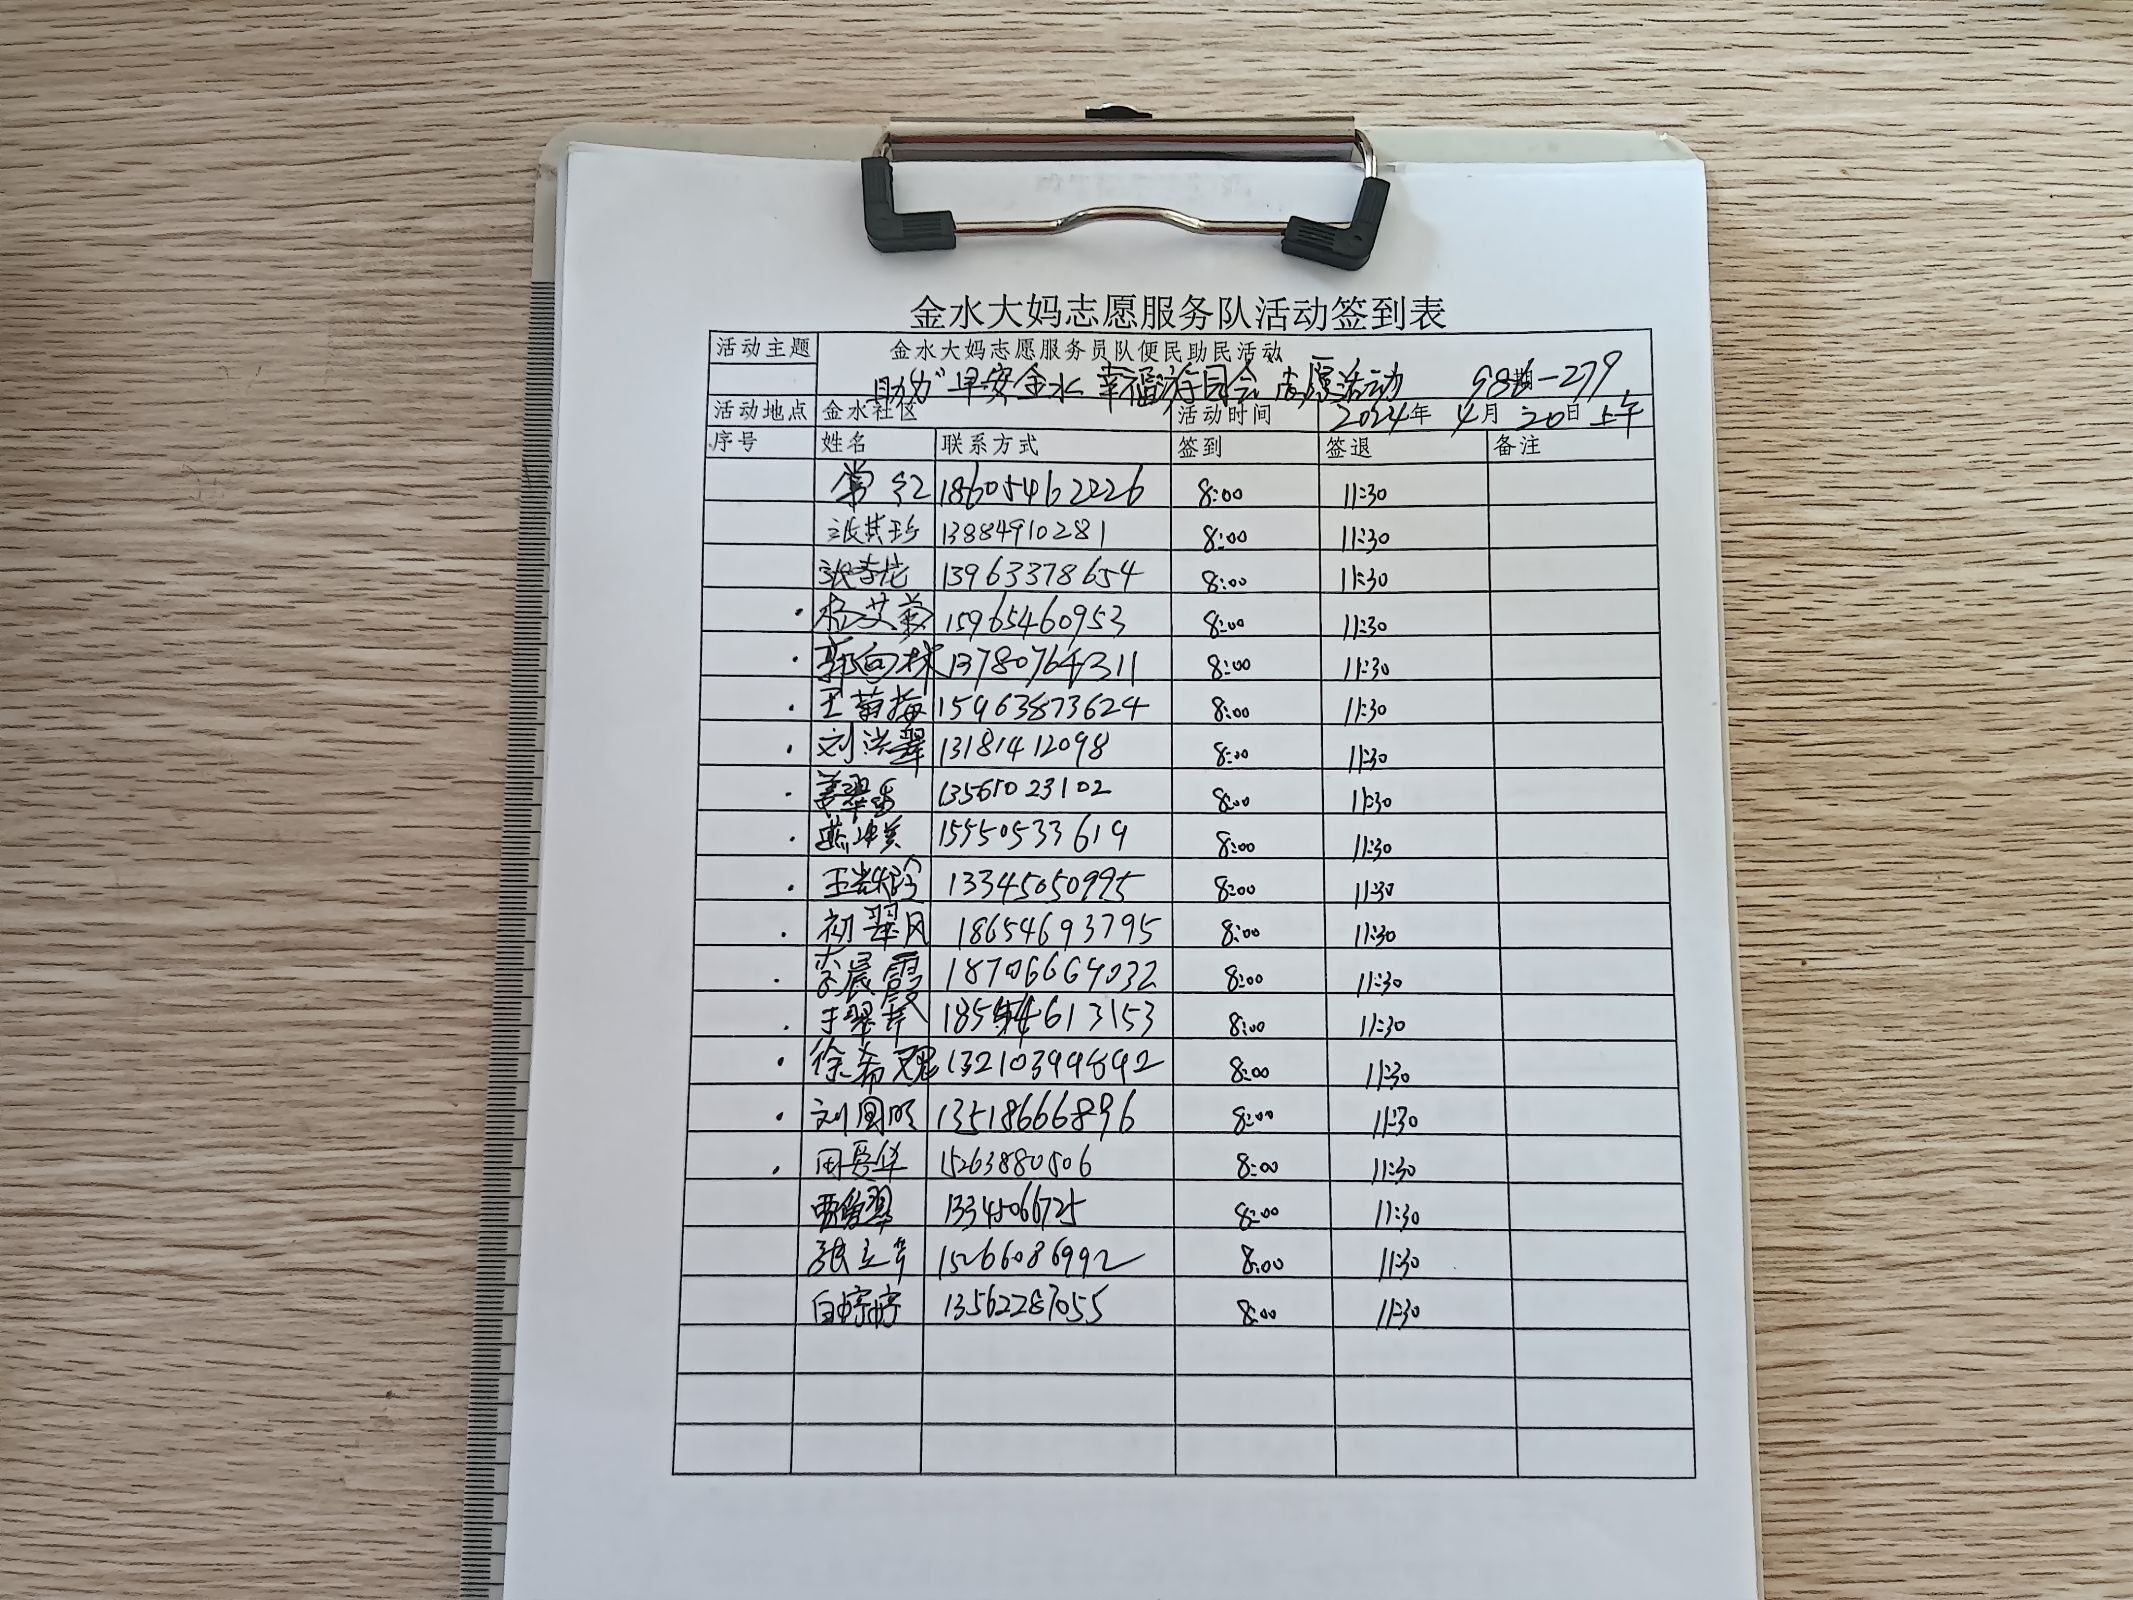 金水大妈志愿服务队活动签到表
活动主题 金水大妈志愿服务员队便民助民活动
助力"早安金水 幸福游园会"志愿活动 98期-279
活动地点 金水社区 活动时间 2024年 4月 20日 上午
序号 姓名 联系方式 签到 签退 备注
常红 18605462226 8:00 11:30
张其珍 13884910281 8:00 11:30
张秀花 13963378654 8:00 11:30
杨艾菊 15965460953 8:00 11:30
郭向林 13780764311 8:00 11:30
王菊梅 15963873624 8:00 11:30
刘洪翠 13181412098 8:00 11:30
姜翠香 13561023102 8:00 11:30
燕冲美 15550533619 8:00 11:30
王崇珍 13345050995 8:00 11:30
初翠风 18654693795 8:00 11:30
李晨霞 18706664032 8:00 11:30
于翠芹 18554613153 8:00 11:30
徐希 13210399892 8:00 11:30
刘国明 13518666896 8:00 11:30
田爱华 15263880506 8:00 11:30
贾爱翠 13345066725 8:00 11:30
张立芹 15266086992 8:00 11:30
白婷婷 13562287055 8:00 11:30